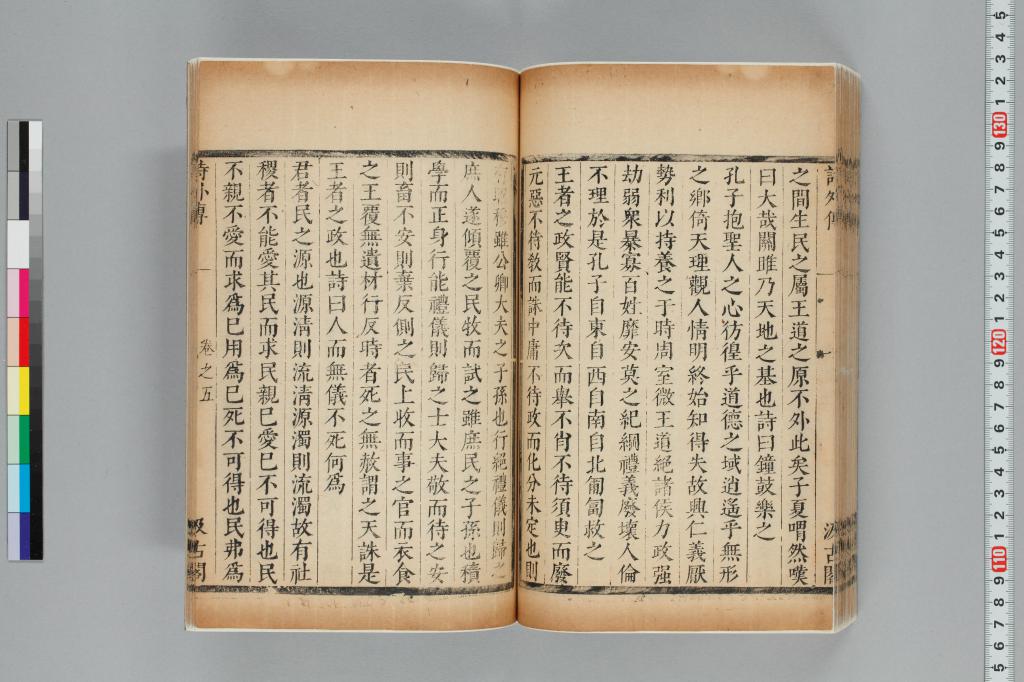 之間生民之屬王道之原不外此矣子夏喟然嘆
曰大哉關雎乃天地之基也詩曰鐘鼓樂之
孔子抱聖人之心彷徨乎道德之域逍遙乎無形
之鄉倚天理觀人情明終始知得失故興仁義厭
勢利以持養之于時周室微王道絕諸侯力政强
劫弱衆暴寡百姓靡安莫之紀綱禮義廢壞人倫
不理於是孔子自東自西自南自北匍匐救之
王者之政賢能不待次而舉不肖不待須臾而廢
元惡不待敎而誅中庸不待政而化分未定也則
雖公卿大夫之子孫也行絕禮儀則歸之
庶人遂傾覆之民牧而試之雖庶民之子孫也積
學而正身行能禮儀則歸之士大夫敬而待之安
則畜不安則棄反側之民上收而事之官而衣食
之王覆無遺材行反時者死之無赦謂之天誅是
王者之政也詩曰人而無儀不死何爲
君者民之源也源淸則流淸源濁則流濁故有社
稷者不能愛其民而求民親已愛已不可得也民
不親不愛而求爲已用爲已死不可得也民弗爲
詩外傳
卷之五
汲古閣